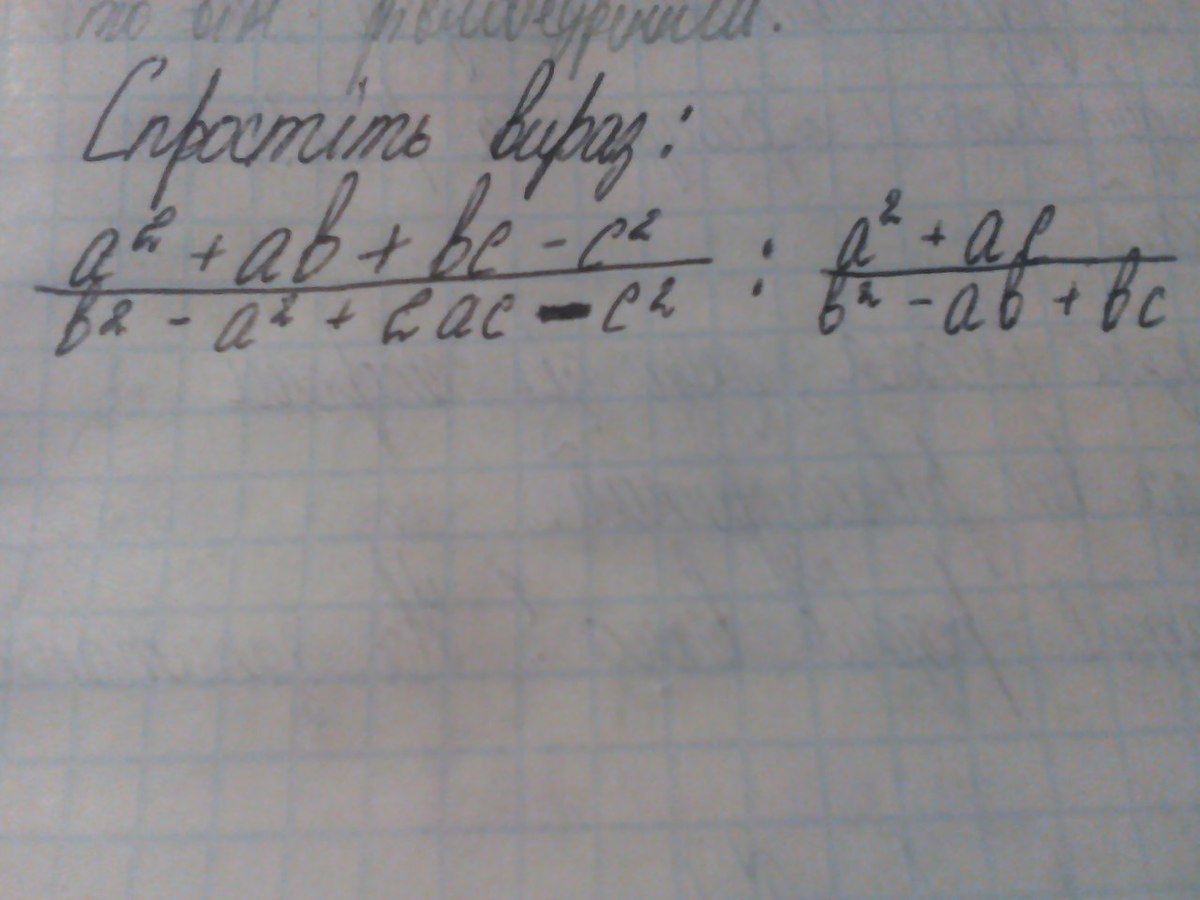 Спростіть вираз:
a² + ab + bc - c² : a² + ac
b² - a² + 2ac - c² b² - ab + bc